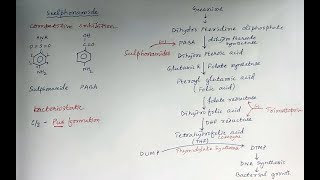 Sulphonamide
Competitive inhibition
NH₂
NH₂
Sulphonamide PABA
bacteriostatic
C/I - Pus formation
Dihydro Pteridine diphosphate
Sulphonamides
PABA
dihydropteroate
synthetase
Dihydro Pteroic acid
Glutamic
Folate synthetase
Pteroyl glutamic acid
(Folic acid)
folate reductase
Dihydrofolic acid
Trimethoprim
DHF reductase
Tetrahydrofolic acid
(THF)
Coenzyme
DUMP
Thymidylate Synthetase
DTMP
DNA Synthesis
Bacterial growth